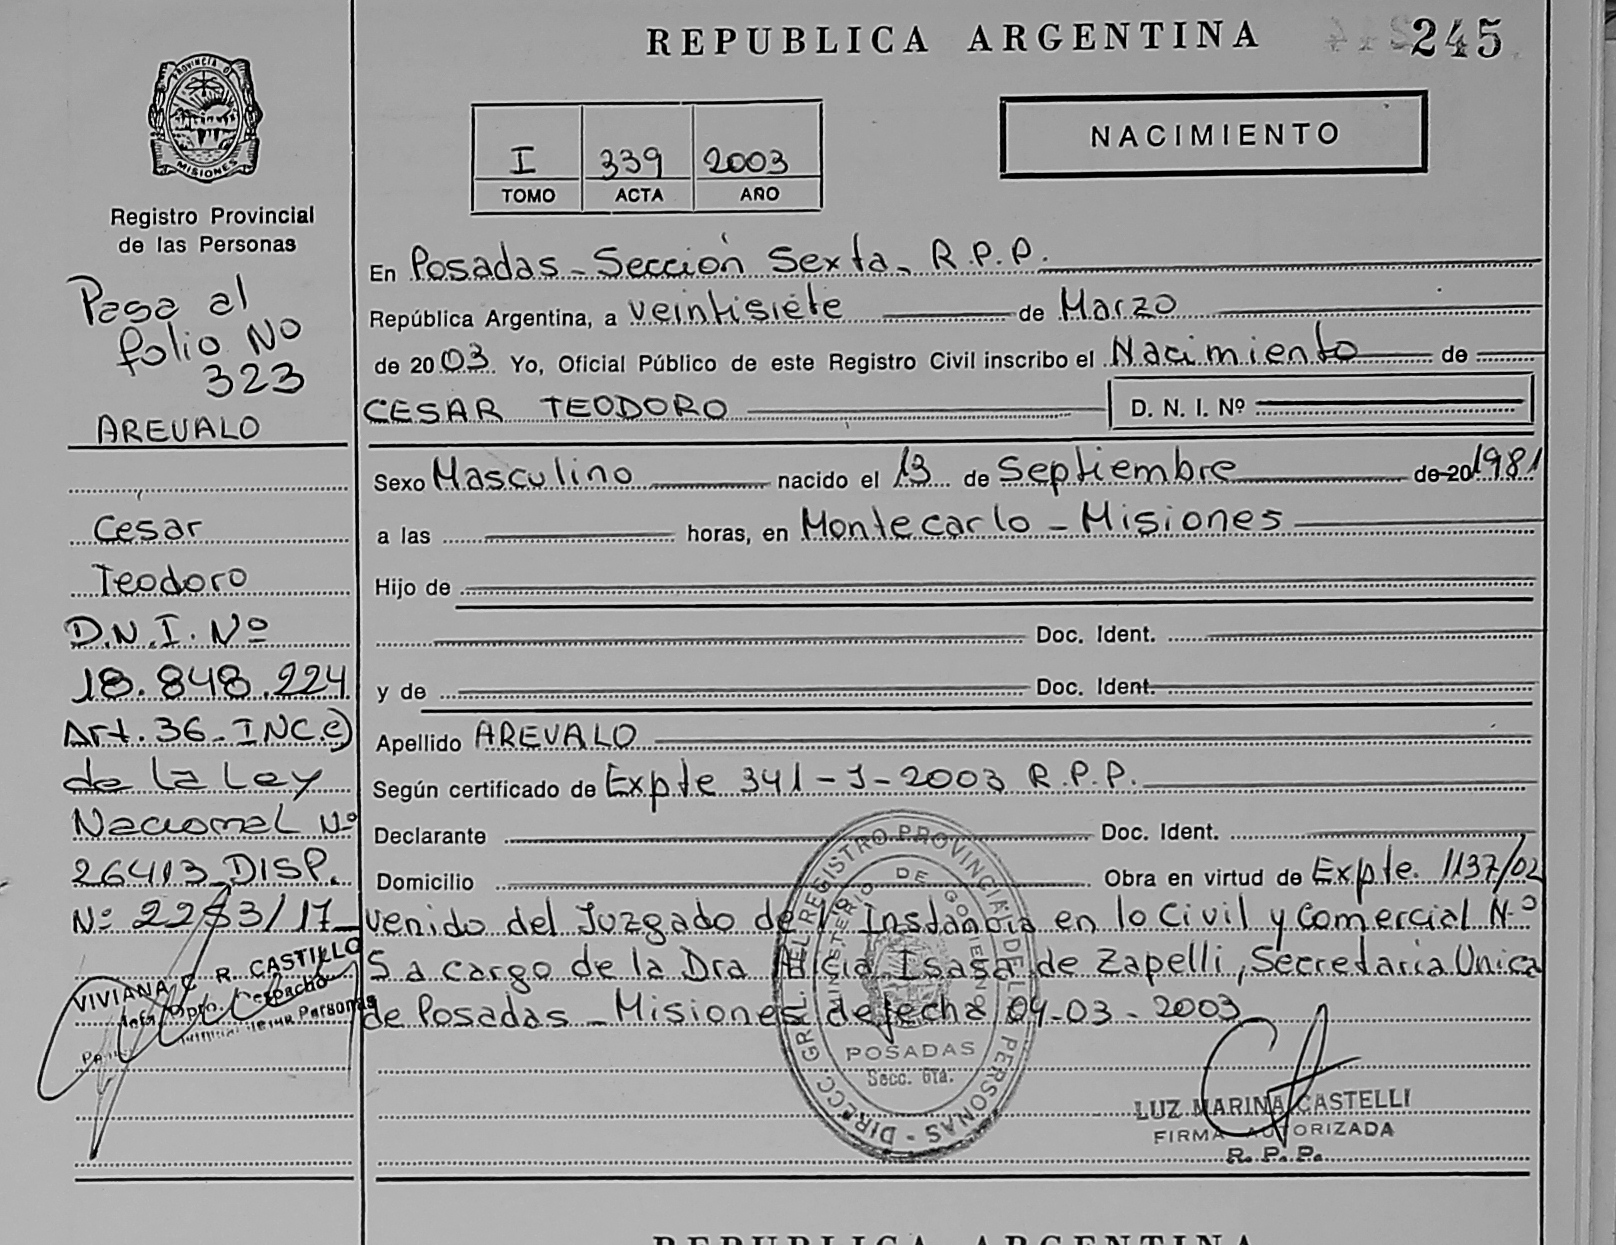 REPUBLICA ARGENTINA
245
PROVINCIA DE
MISIONES
Registro Provincial
de las Personas
I 339 2003
TOMO ACTA AÑO
NACIMIENTO
Pasa al
folio No
323
AREVALO
Cesar
Teodoro
D.N.I. Nº
18.848.224
Art. 36 - INC. e)
de la Ley
Nacional Nº
26413 DISP.
Nº 2253/17
VIVIANA C. R. CASTILLO
Despacho
Personas
En Posadas - Sección Sexta, R.P.P.
República Argentina, a veintisiete de Marzo
de 2003. Yo, Oficial Público de este Registro Civil inscribo el Nacimiento de
CESAR TEODORO D. N. I. Nº
Sexo Masculino nacido el 13 de Septiembre de 20 1981
a las horas, en Montecarlo - Misiones
Hijo de
Doc. Ident.
y de Doc. Ident.
Apellido AREVALO
Según certificado de Expte 341-J-2003 R.P.P.
Declarante Doc. Ident.
Domicilio Obra en virtud de Expte. 1137/02
venido del Juzgado de 1º Instancia en lo Civil y Comercial Nº
5 a cargo de la Dra Alicia Isasa de Zapelli, Secretaria Unica
de Posadas - Misiones de fecha 04-03-2003
DIRECC. GRAL. DEL REGISTRO PROVINCIAL DE PERSONAS
MINISTERIO DE GOBIERNO
POSADAS
Secc. 6ta.
LUZ MARINA CASTELLI
FIRMA AUTORIZADA
R. P. P.
REPUBLICA ARGENTINA